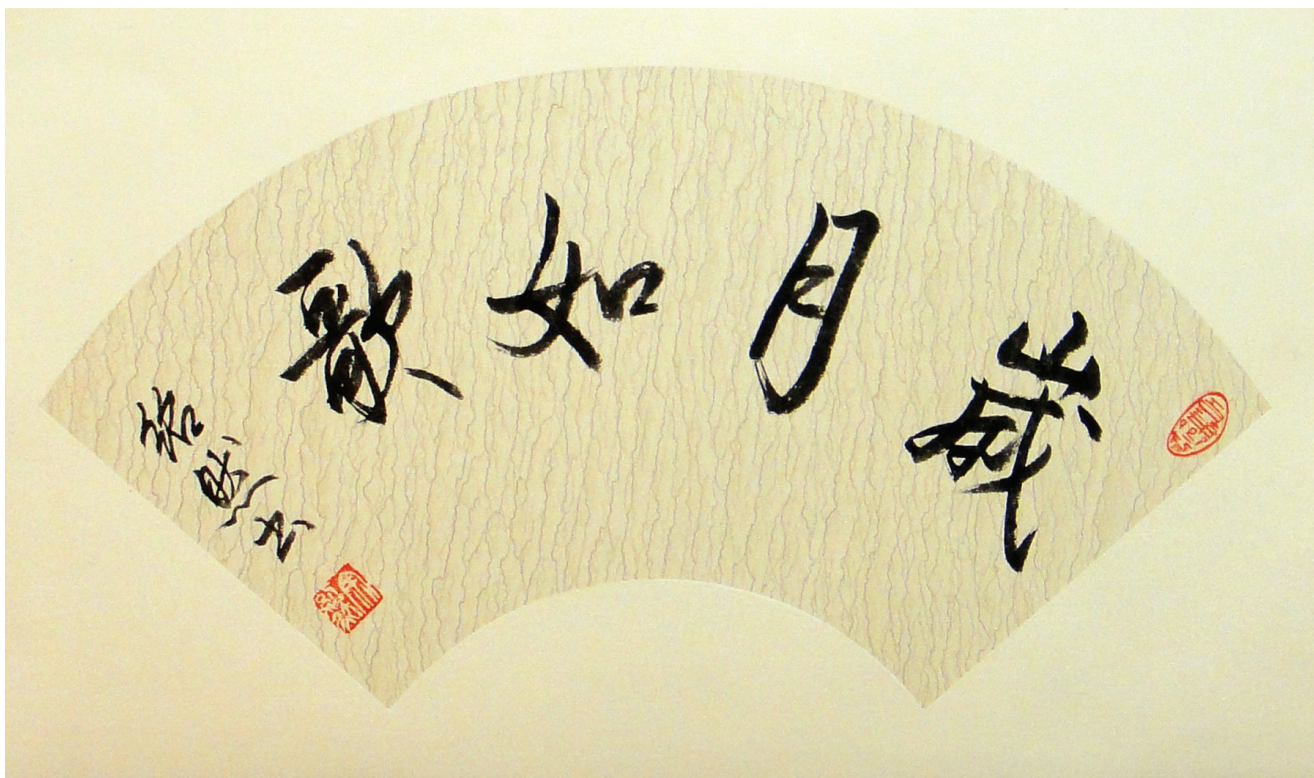 歲月如歌
書